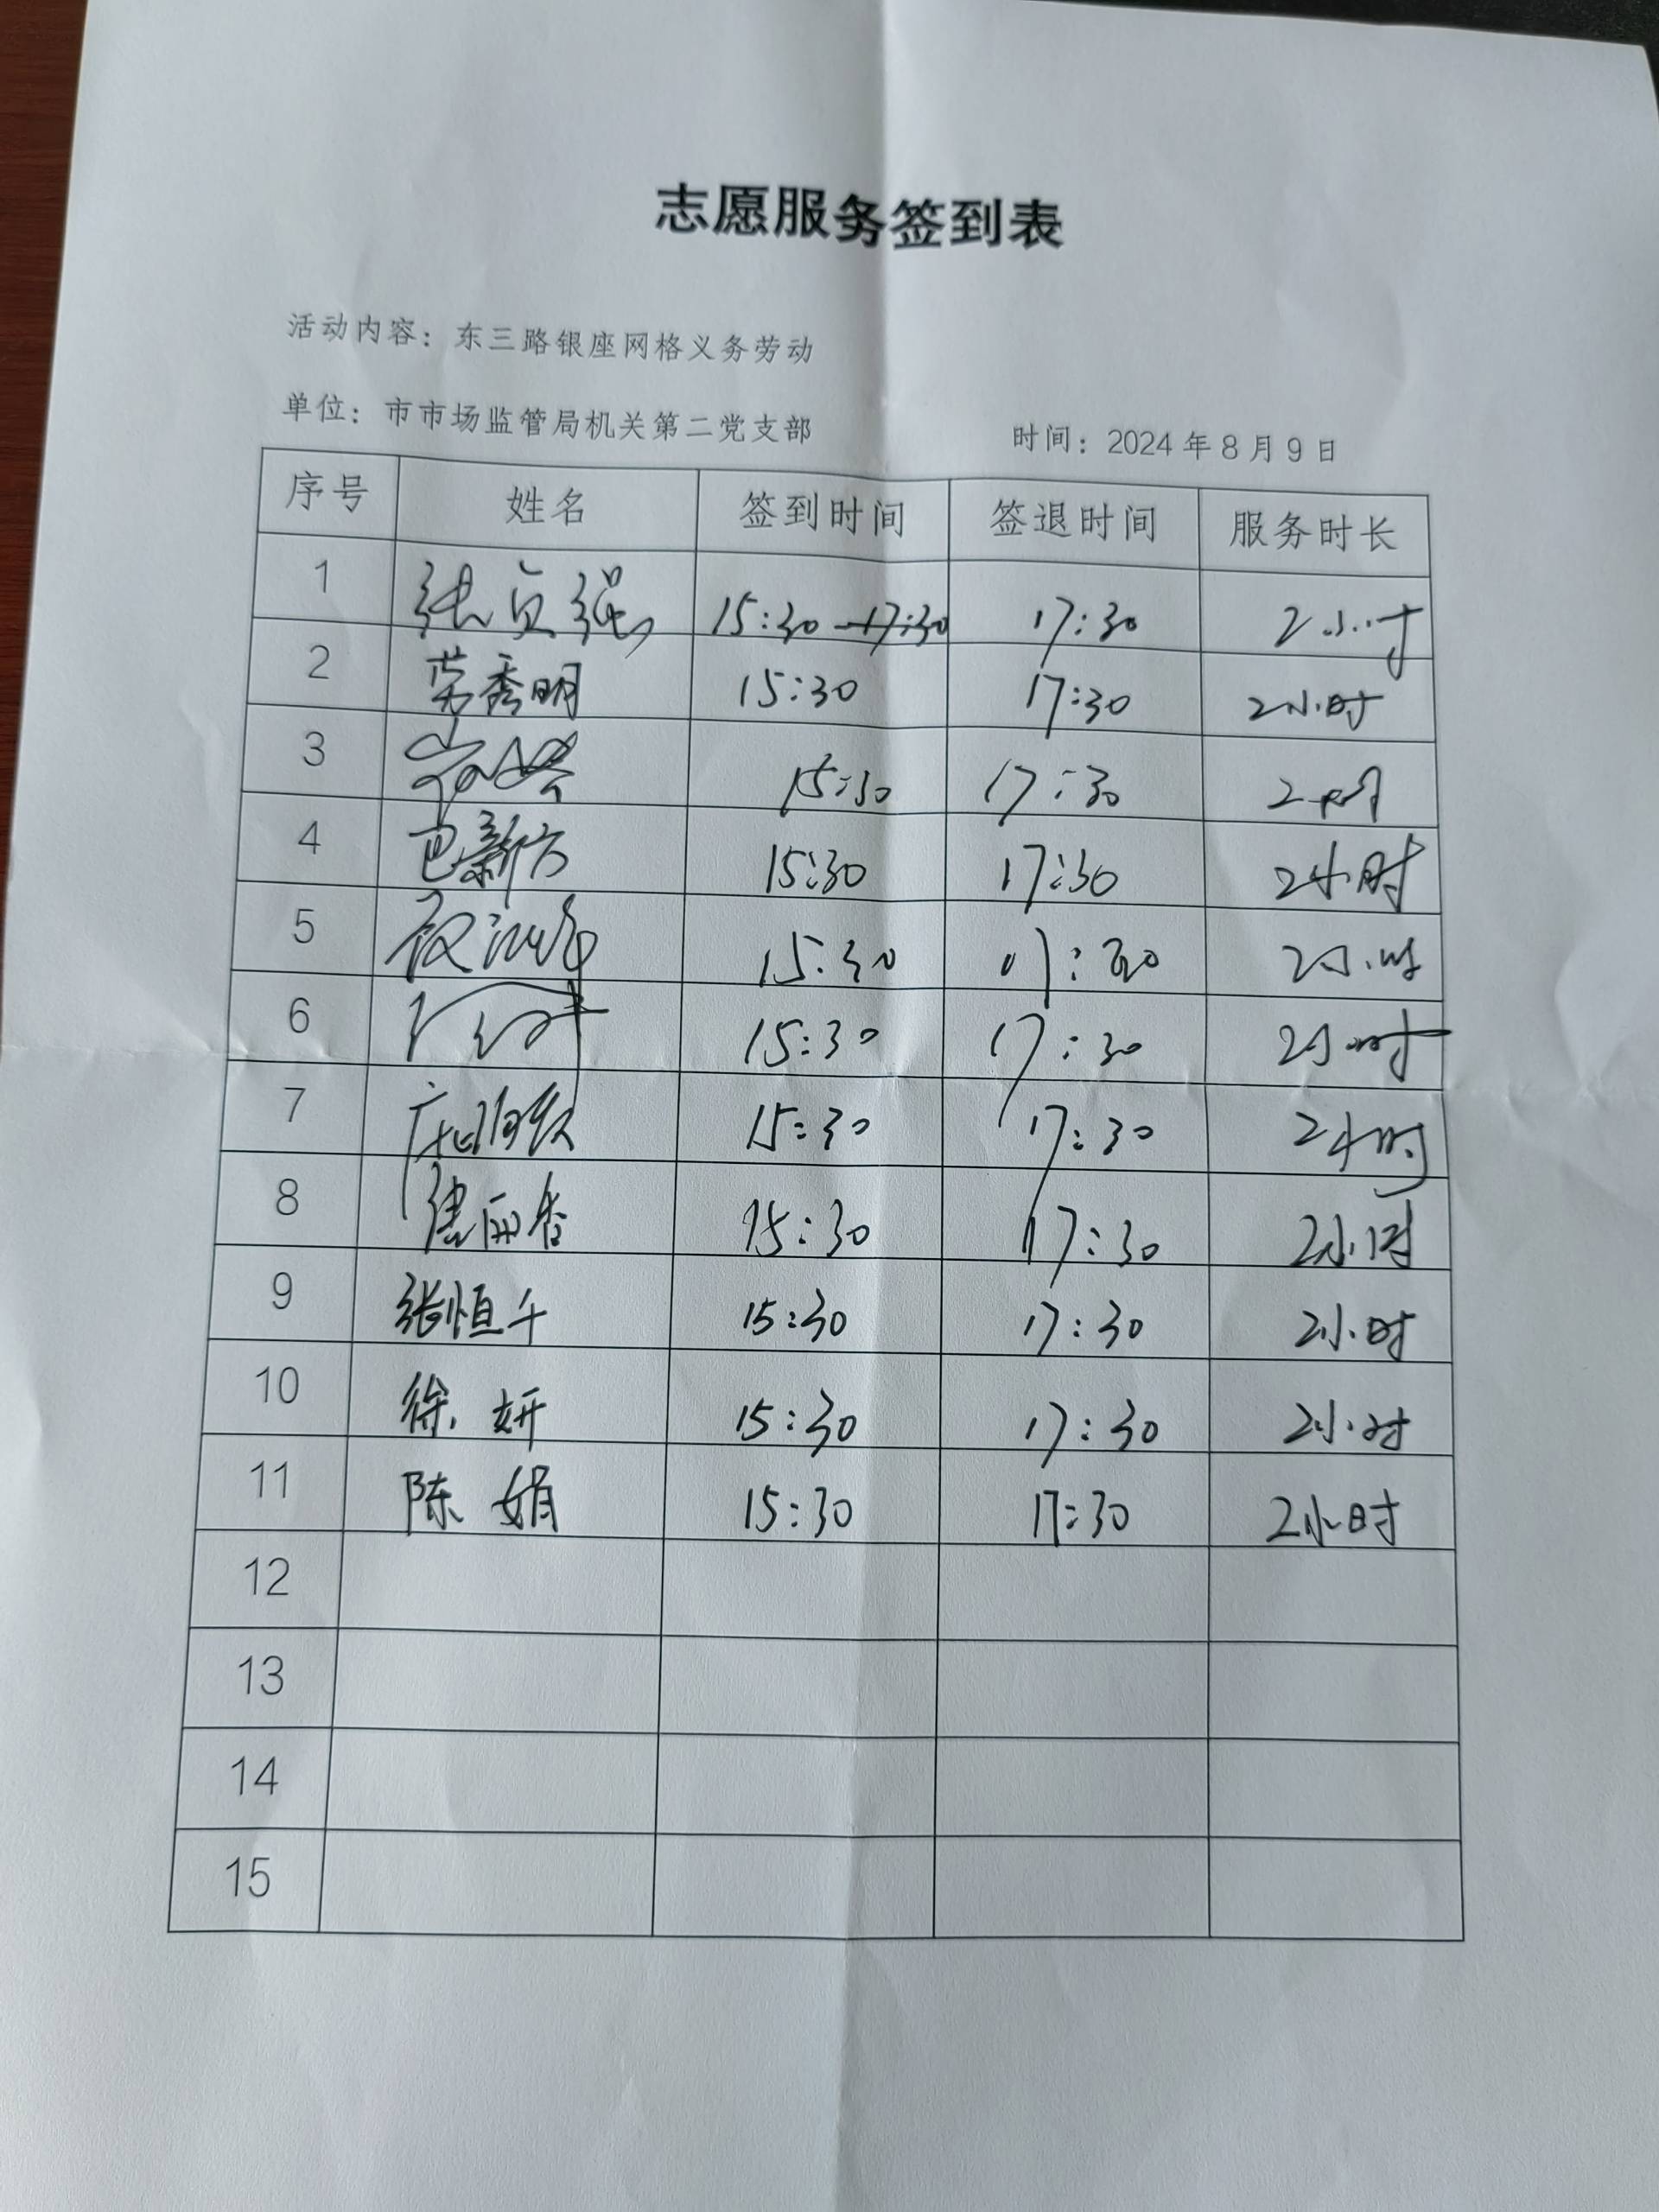 志愿服务签到表
活动内容：东三路银座网格义务劳动
单位：市市场监管局机关第二党支部 时间：2024年8月9日
序号 姓名 签到时间 签退时间 服务时长
1 15:30 17:30 2小时
2 秀明 15:30 17:30 2小时
3 15:30 17:30 2小时
4 巴新方 15:30 17:30 2小时
5 15:30 17:30 2小时
6 15:30 17:30 2小时
7 15:30 17:30 2小时
8 15:30 17:30 2小时
9 张恒千 15:30 17:30 2小时
10 徐妍 15:30 17:30 2小时
11 陈娟 15:30 17:30 2小时
12
13
14
15